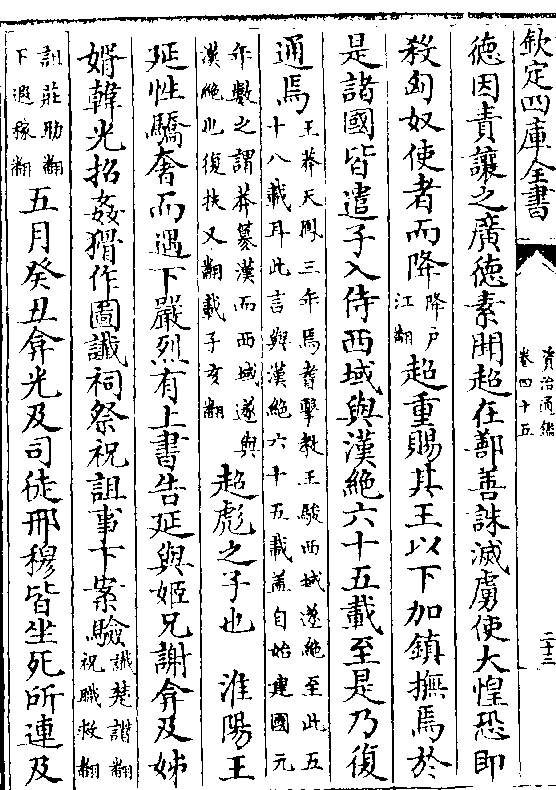 欽定四庫全書
資治通鑑
卷四十五
二十三
德因責讓之廣德素聞超在鄯善誅滅虜使大惶恐即
殺匈奴使者而降降户江翻超重賜其王以下加鎮撫焉於
是諸國皆遣子入侍西域與漢絶六十五載至是乃復
通焉王莽天鳳三年焉耆擊殺王駿西域遂絶至此五
十八載耳此言與漢絶六十五載蓋自始建國元
年數之謂莽簒漢而西域遂與
漢絶也復扶又翻載子亥翻超彪之子也　淮陽王
延性驕奢而遇下嚴烈有上書告延與姬兄謝弇及姊
婿韓光招姦猾作圖讖祠祭祝詛事下案驗讖楚譖翻
祝職救翻
詛莊助翻
下遐稼翻五月癸丑弇光及司徒邢穆皆坐死所連及